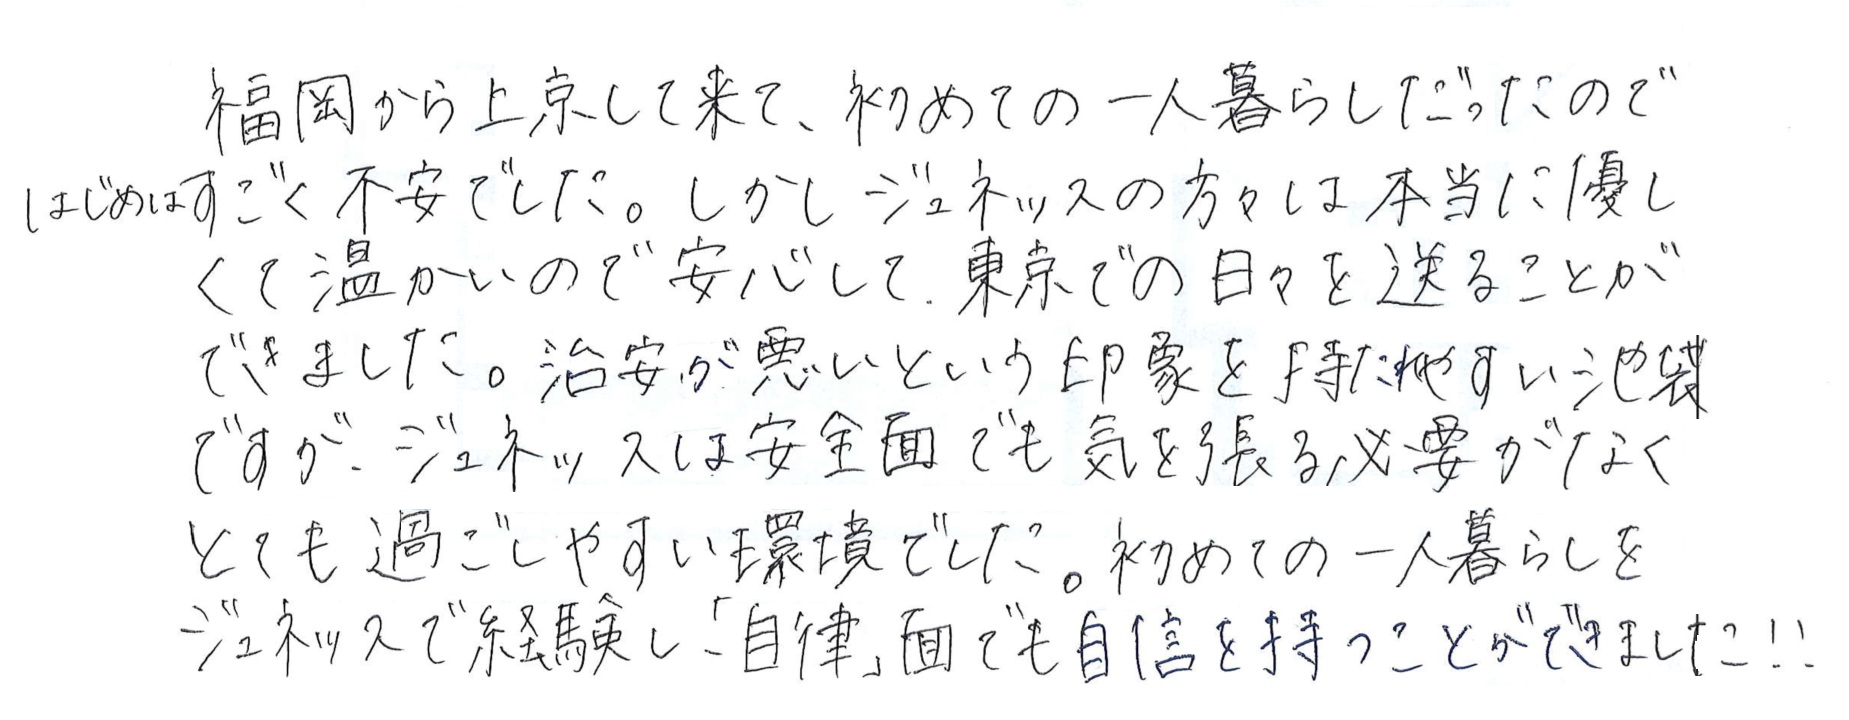 福岡から上京して来て、初めての一人暮らしだったので
はじめはすごく不安でした。しかしジュネッスの方々は本当に優し
くて温かいので安心して、東京での日々を送ることが
できました。治安が悪いという印象を持たれやすい池袋
ですが、ジュネッスは安全面でも気を張る必要がなく
とても過ごしやすい環境でした。初めての一人暮らしを
ジュネッスで経験し「自律」面でも自信を持つことができました!!